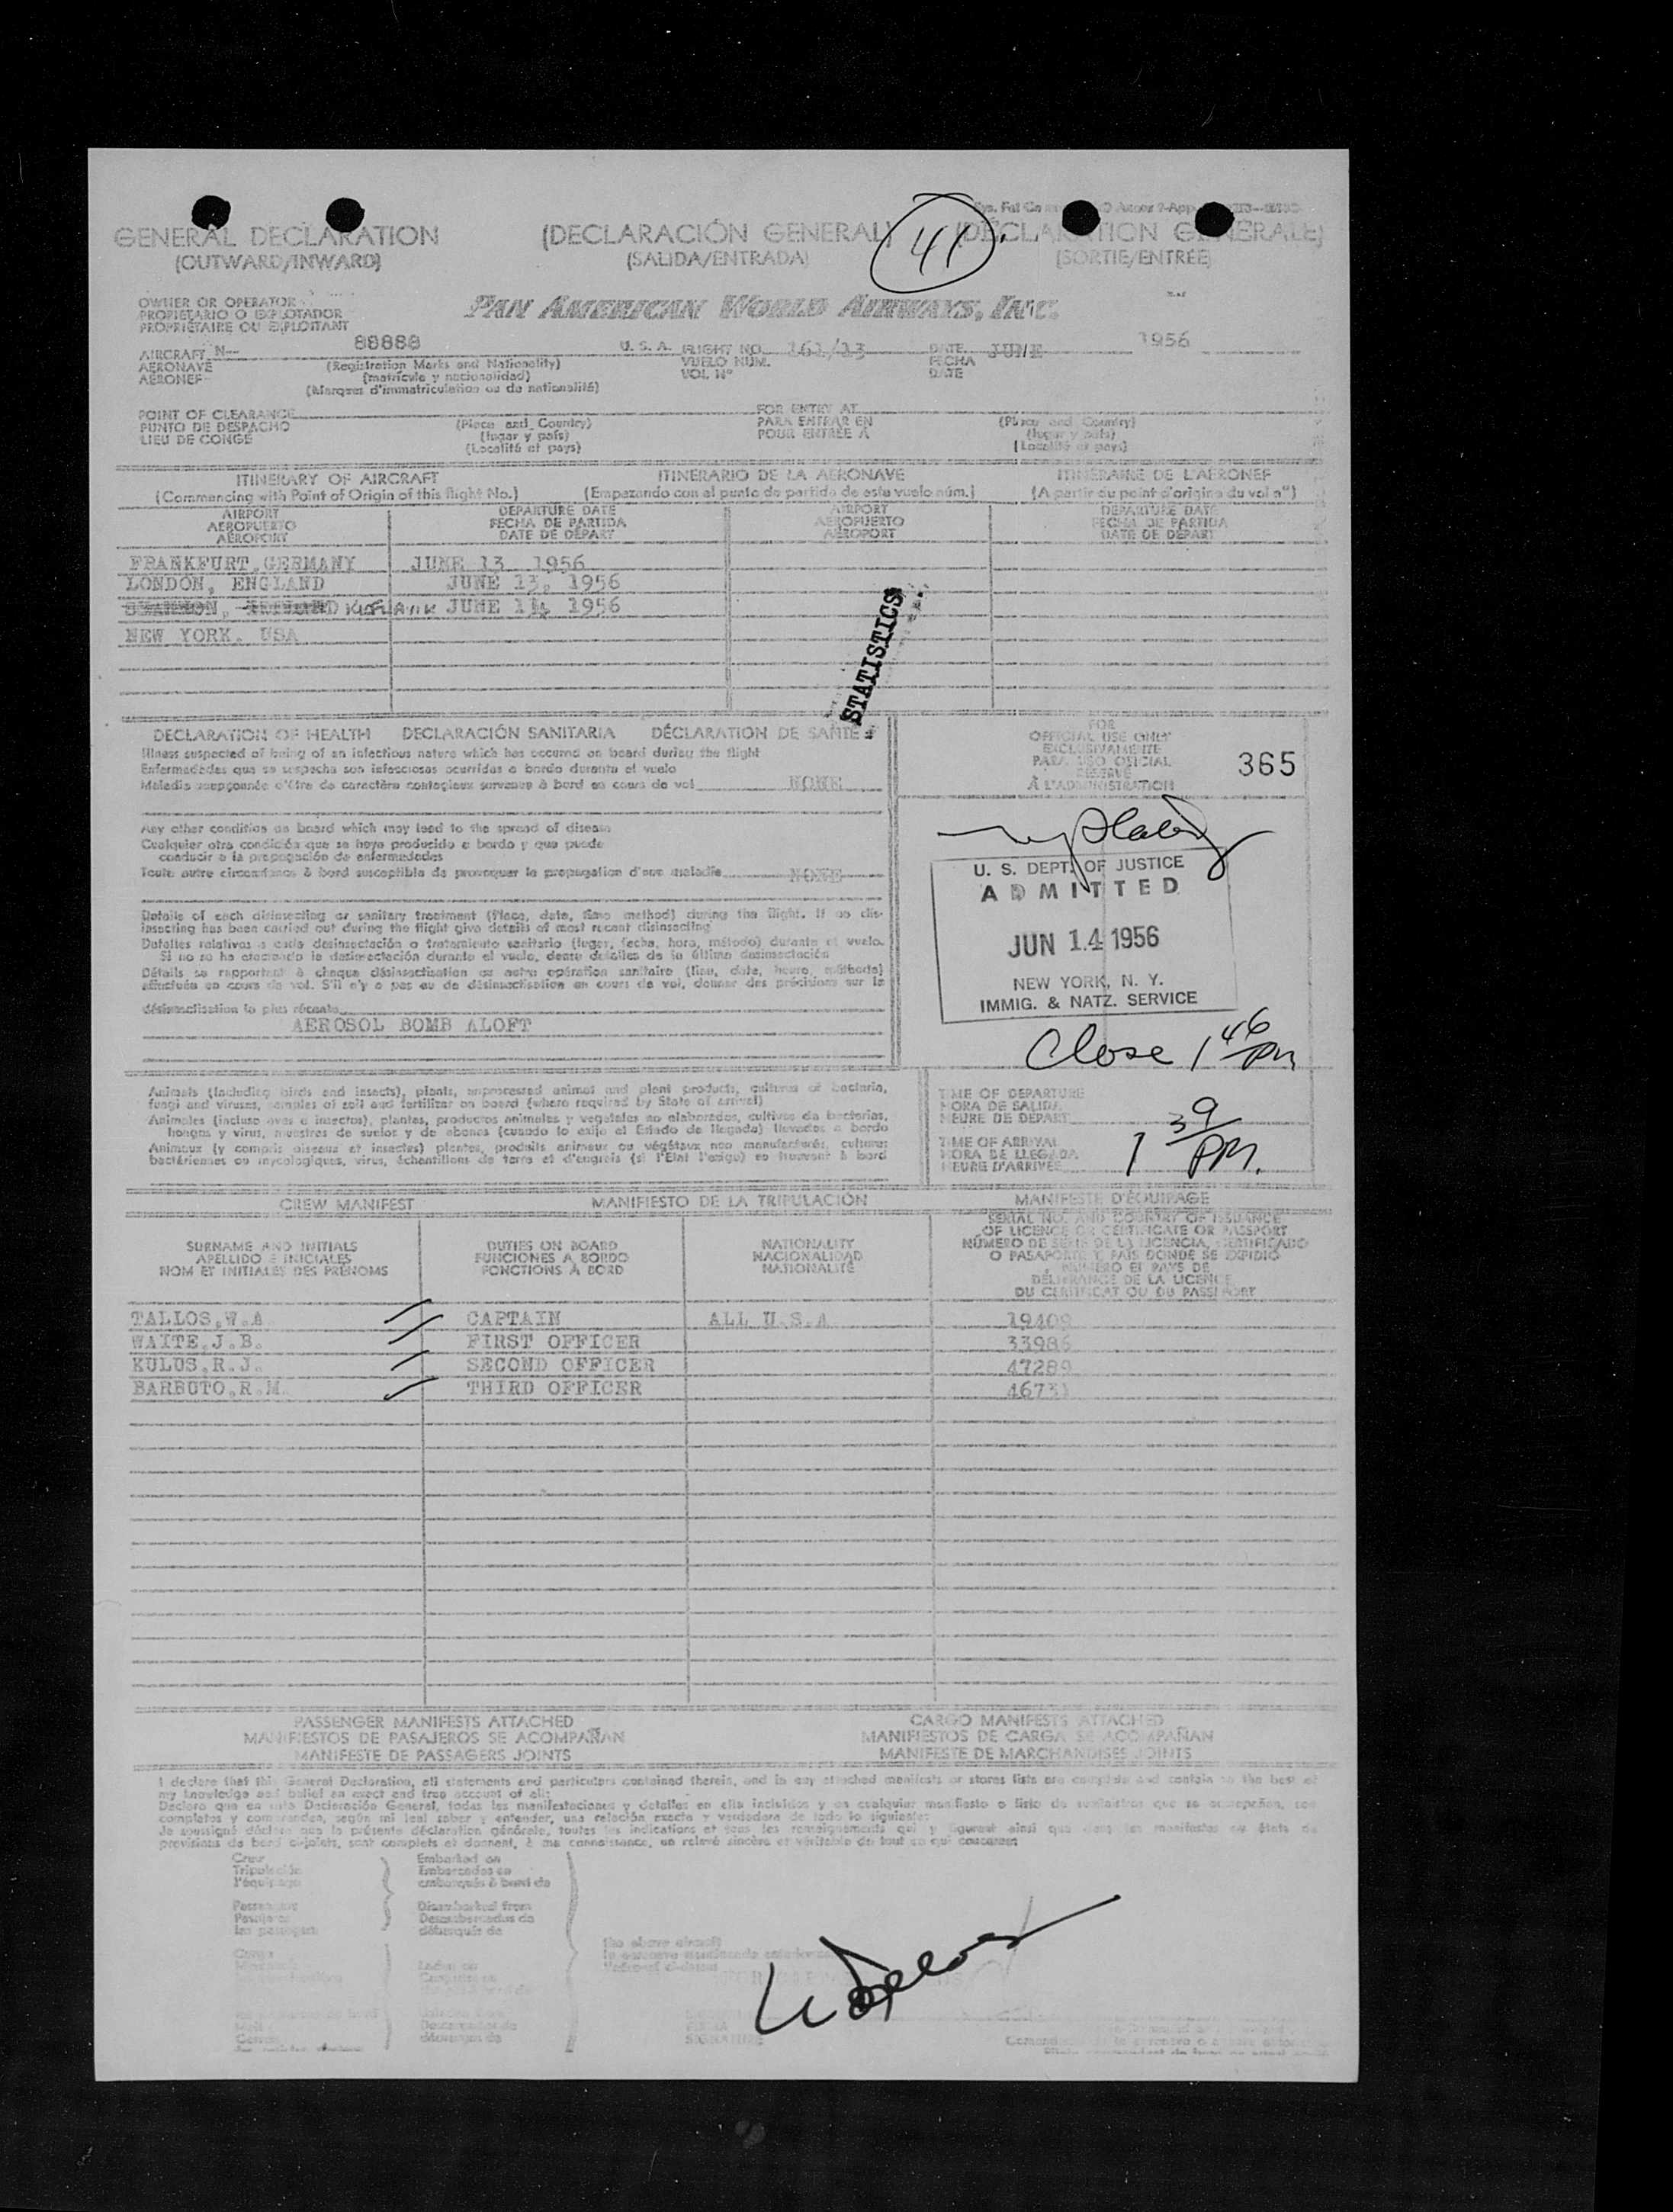 GENERAL DECLARATION (DECLARACIÓN GENERAL) (DÉCLARATION GÉNÉRALE)
(OUTWARD/INWARD) (SALIDA/ENTRADA) (SORTIE/ENTRÉE)
41
OWNER OR OPERATOR
PROPIETARIO O EXPLOTADOR
PROPRIÉTAIRE OU EXPLOITANT
PAN AMERICAN WORLD AIRWAYS, INC.
AIRCRAFT N— 88888 U. S. A. FLIGHT NO. 161/13 DATE JUNE 1956
AÉRONAVE (Registration Marks and Nationality) VUELO NUM. FECHA
AÉRONEF (matrícula y nacionalidad) VOL Nº DATE
(Marques d'immatriculation ou de nationalité)
POINT OF CLEARANCE FOR ENTRY AT
PUNTO DE DESPACHO (Place and Country) PARA ENTRAR EN (Place and Country)
LIEU DE CONGÉ (lugar y país) POUR ENTRÉE À (lugar y país)
(Localité et pays) (Localité et pays)
ITINERARY OF AIRCRAFT ITINERARIO DE LA AERONAVE ITINÉRAIRE DE L'AÉRONEF
(Commencing with Point of Origin of this flight No.) (Empezando con el punto de partida de este vuelo núm.) (A partir du point d'origine du vol nº)
AIRPORT DEPARTURE DATE AIRPORT DEPARTURE DATE
AEROPUERTO FECHA DE PARTIDA AEROPUERTO FECHA DE PARTIDA
AÉROPORT DATE DE DÉPART AÉROPORT DATE DE DÉPART
FRANKFURT, GERMANY JUNE 13 1956
LONDON, ENGLAND JUNE 13, 1956
SHANNON, JUNE 14, 1956
NEW YORK. USA
STATISTICS
DECLARATION OF HEALTH DECLARACIÓN SANITARIA DÉCLARATION DE SANTÉ
Illness suspected of being of an infectious nature which has occurred on board during the flight
Enfermedades que se sospecha son infecciosas ocurridas a bordo durante el vuelo
Maladie soupçonnée d'être de caractère contagieux survenue à bord en cours de vol NONE
Any other condition on board which may lead to the spread of disease
Cualquier otra condición que se haya producido a bordo y que puede
conducir a la propagación de enfermedades
Toute autre circonstance à bord susceptible de provoquer la propagation d'une maladie NONE
Details of each disinsecting or sanitary treatment (Place, date, time method) during the flight. If no dis-
insecting has been carried out during the flight give details of most recent disinsecting
Detalles relativos a cada desinsectación o tratamiento sanitario (lugar, fecha, hora, método) durante el vuelo.
Si no se ha efectuado la desinsectación durante el vuelo, dense detalles de la última desinsectación
Détails se rapportant à chaque désinsectisation ou autre opération sanitaire (lieu, date, heure, méthode)
effectuée en cours de vol. S'il n'y a pas eu de désinsectisation en cours de vol, donner des précisions sur la
désinsectisation la plus récente
AEROSOL BOMB ALOFT
FOR
OFFICIAL USE ONLY
EXCLUSIVAMENTE
PARA USO OFICIAL
RÉSERVÉ
À L'ADMINISTRATION
365
U. S. DEPT. OF JUSTICE
ADMITTED
JUN 14 1956
NEW YORK, N. Y.
IMMIG. & NATZ. SERVICE
Close 1 46 PM
Animals (including birds and insects), plants, unprocessed animal and plant products, cultures of bacteria,
fungi and viruses, samples of soil and fertilizer on board (where required by State of arrival)
Animales (incluso aves e insectos), plantas, productos animales y vegetales no elaborados, cultivos de bacterias,
hongos y virus, muestras de suelos y de abonos (cuando lo exija el Estado de llegada) llevados a bordo
Animaux (y compris oiseaux et insectes) plantes, produits animaux ou végétaux non manufacturés, cultures
bactériennes ou mycologiques, virus, échantillons de terre et d'engrais (si l'Etat l'exige) se trouvant à bord
TIME OF DEPARTURE
HORA DE SALIDA
HEURE DE DEPART
TIME OF ARRIVAL
HORA DE LLEGADA
HEURE D'ARRIVÉE
1 39 PM.
CREW MANIFEST MANIFIESTO DE LA TRIPULACIÓN MANIFESTE D'ÉQUIPAGE
SURNAME AND INITIALS
APELLIDO E INICIALES
NOM ET INITIALES DES PRÉNOMS
DUTIES ON BOARD
FUNCIONES A BORDO
FONCTIONS À BORD
NATIONALITY
NACIONALIDAD
NATIONALITÉ
SERIAL NO. AND COUNTRY OF ISSUANCE
OF LICENCE OR CERTIFICATE OR PASSPORT
NÚMERO DE SERIE DE LA LICENCIA, CERTIFICADO
O PASAPORTE Y PAÍS DONDE SE EXPIDIÓ
NUMÉRO ET PAYS DE
DÉLIVRANCE DE LA LICENCE
DU CERTIFICAT OU DU PASSEPORT
TALLOS,W.A. CAPTAIN ALL U.S.A 19409
WAITE,J.B. FIRST OFFICER 33986
KULUS,R.J. SECOND OFFICER 47289
BARBUTO,R.M. THIRD OFFICER 46731
PASSENGER MANIFESTS ATTACHED CARGO MANIFESTS ATTACHED
MANIFIESTOS DE PASAJEROS SE ACOMPAÑAN MANIFIESTOS DE CARGA SE ACOMPAÑAN
MANIFESTE DE PASSAGERS JOINTS MANIFESTE DE MARCHANDISES JOINTS
I declare that this General Declaration, all statements and particulars contained therein, and in any attached manifests or stores lists are complete and contain to the best of
my knowledge and belief an exact and true account of all:
Declaro que en esta Declaración General, todas las manifestaciones y detalles en ella incluidos y en cualquier manifiesto o lista de suministros que se acompañan, son
completos y comprenden, según mi leal saber y entender, una relación exacta y verdadera de todo lo siguiente:
Je soussigné déclare que la présente déclaration générale, toutes les indications et tous les renseignements qui y figurent ainsi que dans les manifestes ou états de
provisions de bord ci-joints, sont complets et donnent, à ma connaissance, un relevé sincère et véritable de tout ce qui concerne:
Crew Embarked on
Tripulación Embarcados en
l'équipage embarqués à bord de
Passengers Disembarked from
Pasajeros Desembarcados de
les passagers débarqués de
the above aircraft